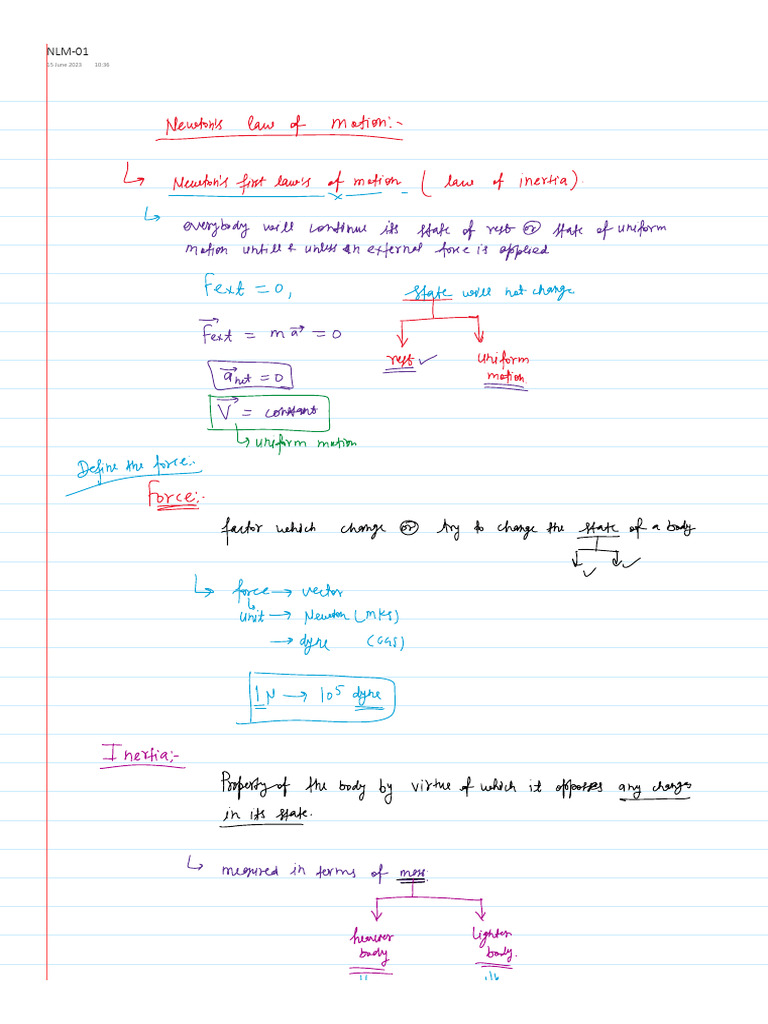 NLM-01
15 June 2023 10:36
Newton's law of motion:-
Newton's first law's of motion ( law of inertia).
everybody will continue its state of rest or state of uniform
motion untill & unless an external force is applied
Fext = 0, state will not change
Fext = m a = 0
rest ✓ uniform
motion
a net = 0
V = constant
uniform motion
Define the force:-
Force:-
factor which change or try to change the state of a body
✓ ✓
force → vector
unit → Newton (MKS)
→ dyne (CGS)
1 N → 10⁵ dyne
Inertia:-
Property of the body by virtue of which it opposes any change
in its state.
measured in terms of mass.
heavier lighter
body body.